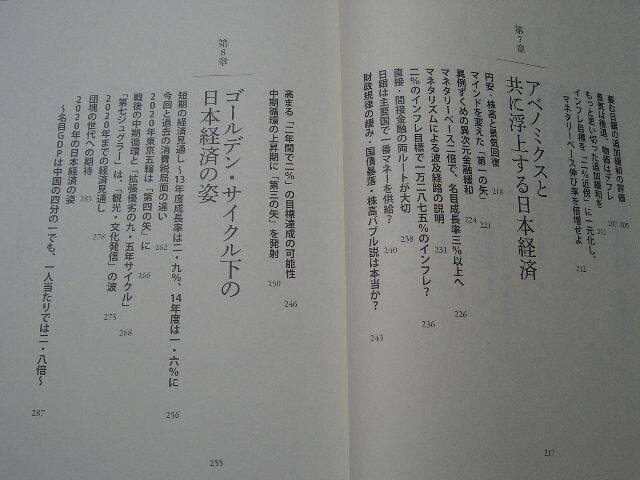 続む日銀の追加緩和の評価 205
景気は後退、物価はデフレ 207
もっと思い切った追加緩和を 211
インフレ目標を「二%近傍」に一元化し、
マネタリーベース伸び率を倍増せよ 212
第7章
アベノミクスと
共に浮上する日本経済
217
円安、株高と景気回復 218
マインドを変えた「第一の矢」 221
異例ずくめの異次元金融緩和 224
マネタリーベース二倍で、名目成長率三%以上へ 226
マネタリズムによる波及経路の説明 231
二%のインフレ目標で一万二八七五%のインフレ? 236
直接・間接金融の両ルートが大切 238
日銀は主要国で一番マネーを供給? 240
財政規律の緩み・国債暴落・株高バブル説は本当か? 243
高まる「二年間で二%」の目標達成の可能性 246
中期循環の上昇期に「第三の矢」を発射 250
第8章
ゴールデン・サイクル下の
日本経済の姿
255
短期の経済見通し〜13年度成長率は二・九%、14年度は一・六%に 256
今回と過去の消費税局面の違い 262
2020年東京五輪は「第四の矢」に 266
戦後の中期循環と「拡張優劣の九・五年サイクル」 268
「第七ジュグラー」は、「観光・文化発信」の波 275
2020年までの経済見通し 278
団塊の世代への期待 285
2020年の日本経済の姿
〜名目GDPは中国の四分の一でも、一人当たりでは二・八倍〜 287